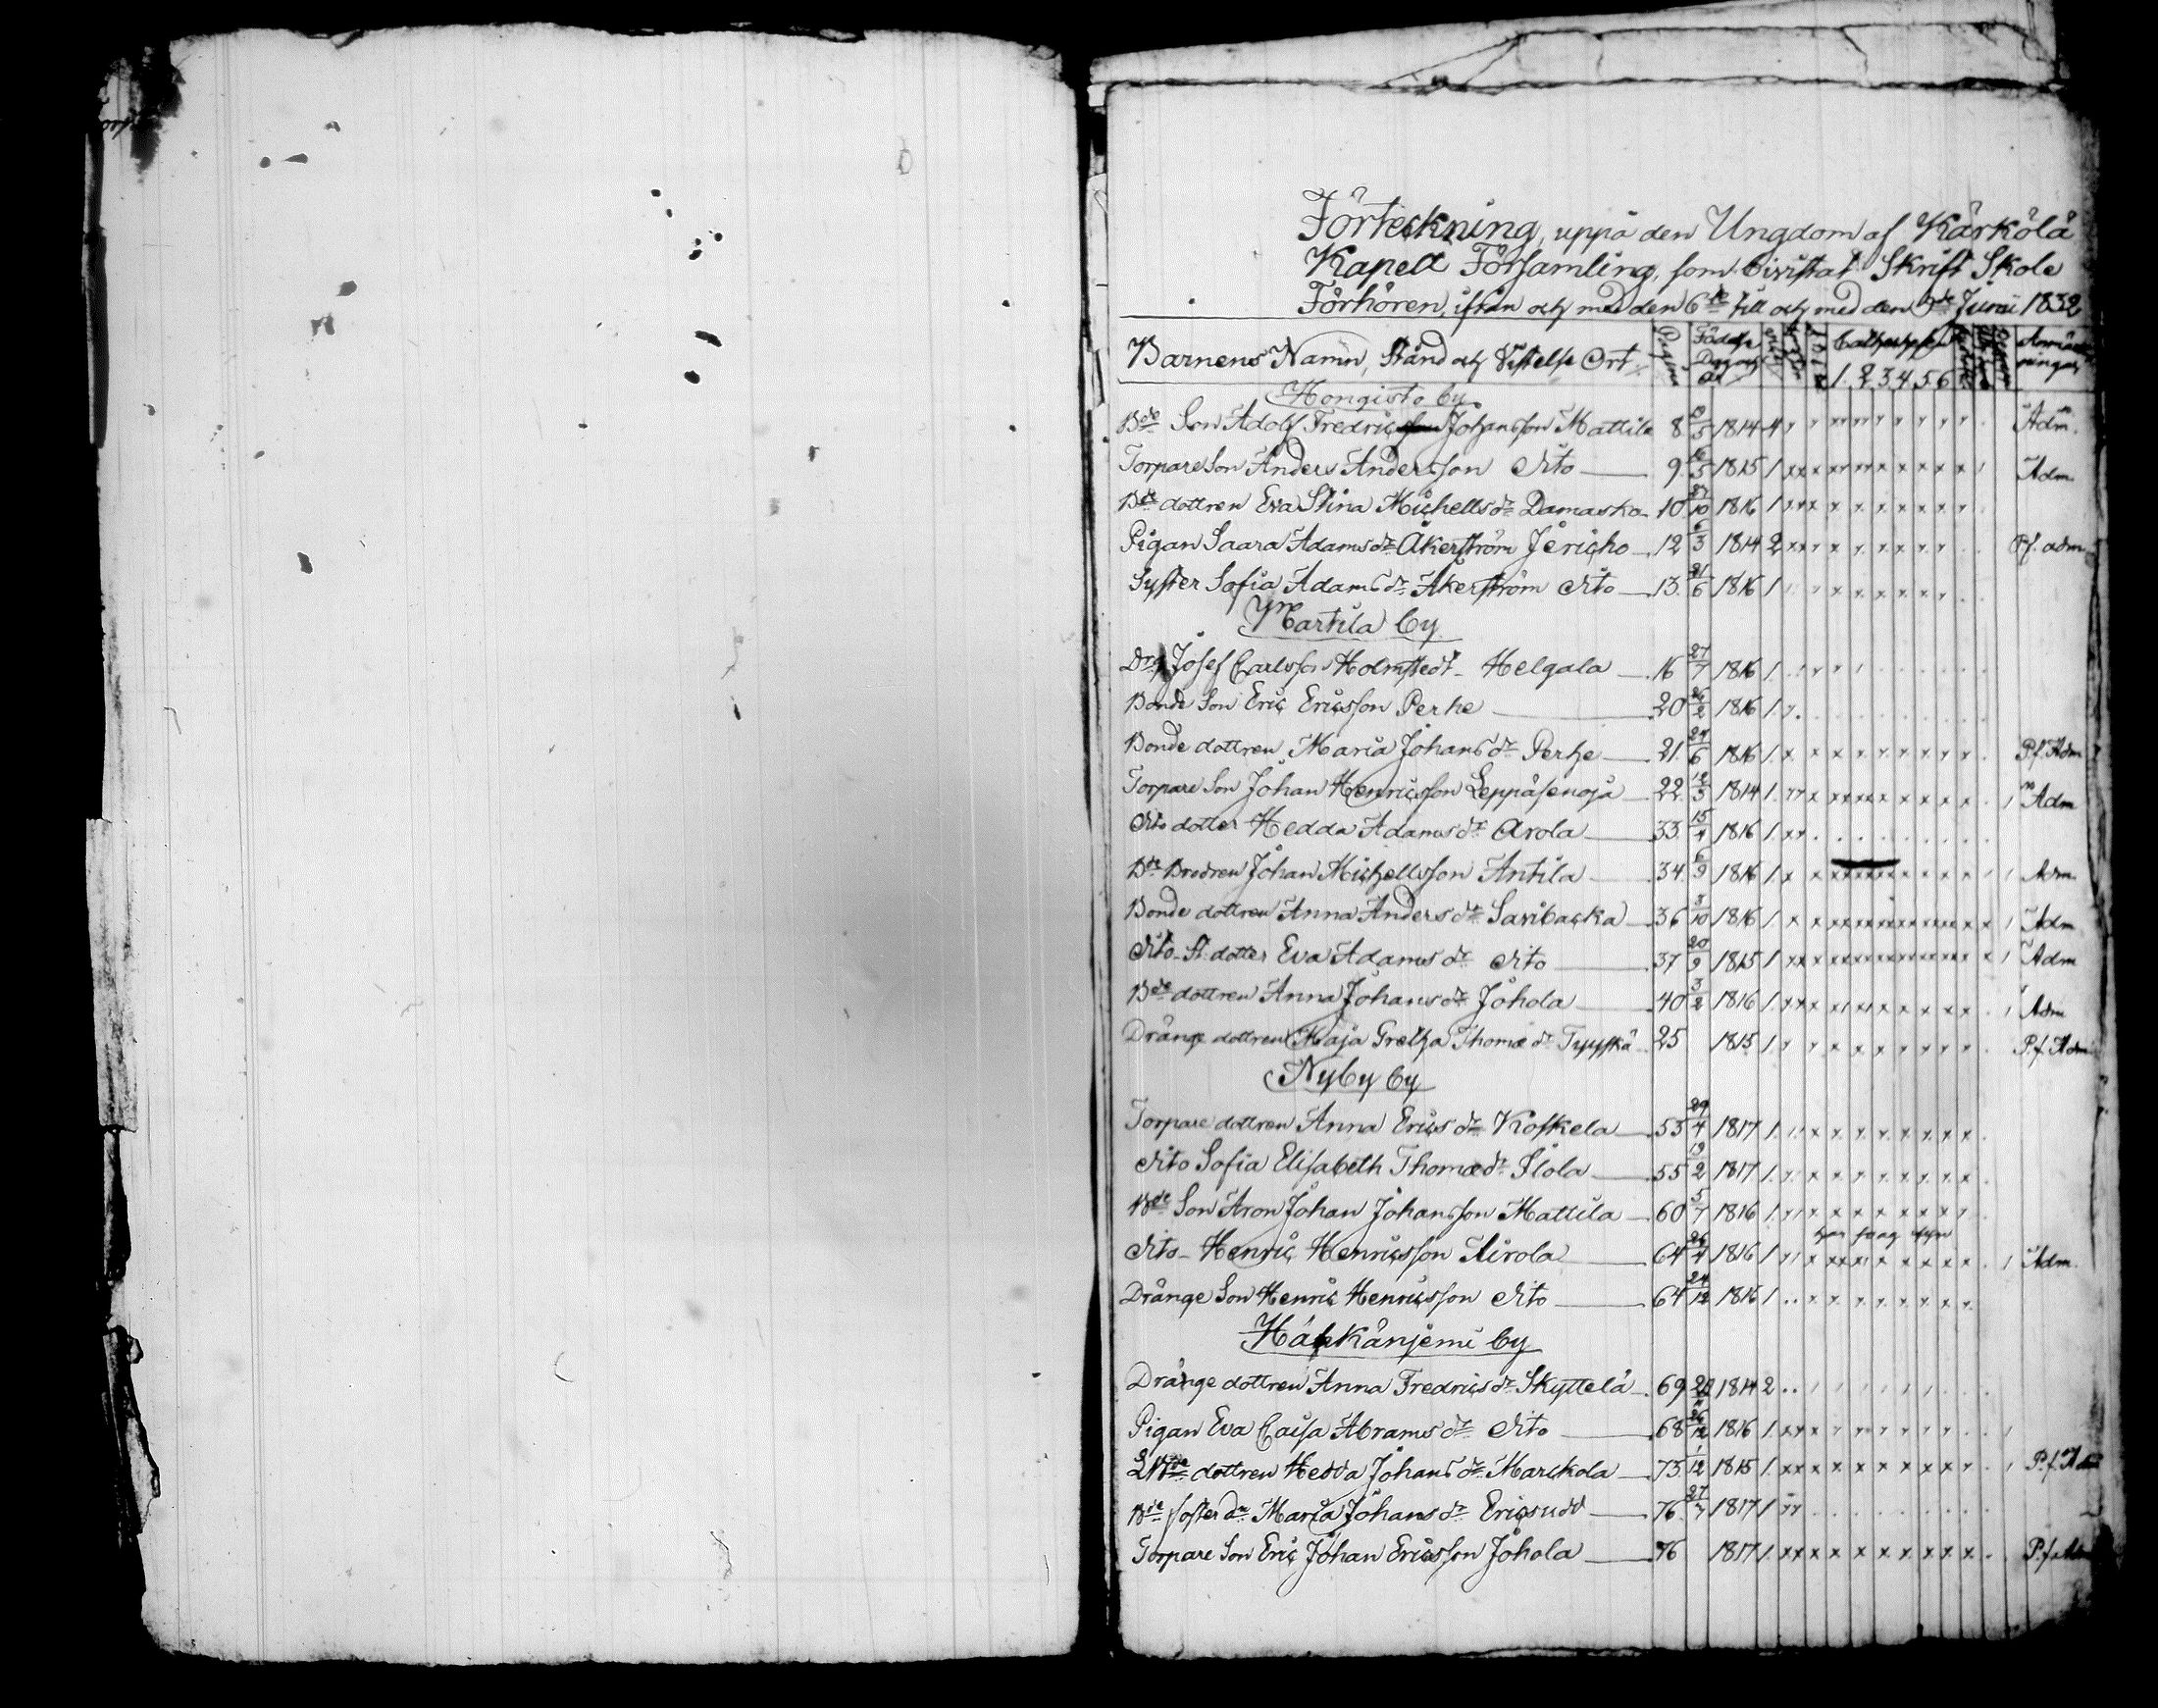 Förteckning, uppå den Ungdom af Kärkölä
Kapell Församling, som bivistat Skrift Skole
Förhören, ifrån och med den 6te till och med den 9de Junii 1832
Barnens Namn, Stånd och Vistelse Ort Pagina Födelse Dag och År 1 2 3 4 5 6 Anmärkningar
Hongisto by
Bde Son Adolf Fredric Johansson Mattila 8 1814 4 Adm.
Torpare Son Anders Andersson Dito 9 1815 1 Adm.
Bde dottren Eva Stina Michelsdr Damasko 10 27/10 1816 1
Pigan Saara Adamsdr Åkerström Jericho 12 6/3 1814 2 P.f. adm.
Syster Sofia Adamsdr Åkerström Dito 13 21/6 1816 1
Martila by
Drg Josef Carlsson Holmstedt Helgala 16 27/7 1816 1
Bonde Son Eric Ericsson Perhe 20 26/2 1816 1
Bonde dottren Maria Johansdr Perhe 21 24/6 1816 1 P.f. Adm
Torpare Son Johan Henricsson Leppäsenoja 22 12/3 1814 1 Adm
Dito dotter Hedda Adamsdr Arola 33 15/4 1816 1
Bde Brodren Johan Michelsson Antila 34 6/9 1816 1 Adm.
Bonde dottren Anna Andersdr Saribacka 36 3/10 1816 1 Adm
Dito St. dotter Eva Adamsdr Dito 37 20/9 1815 1 Adm
Bde dottren Anna Johansdr Johola 40 3/2 1816 1 Adm
Dränge dottren Maja Gretha Thomædr Tyyskä 25 1815 1 P.f. Adm
Nyby by
Torpare dottren Anna Ericsdr Koskela 53 29/4 1817 1
Dito Sofia Elisabeth Thomædr Ilola 55 19/2 1817 1
Bde Son Aron Johan Johansson Mattila 60 5/7 1816 1
Dito Henric Henricsson Airola 64 26/4 1816 1 Adm.
Dränge Son Henric Henricsson Dito 64 24/12 1816 1
Hähkäniemi by
Dränge dottren Anna Fredricsdr Skyttelä 69 1814 2
Pigan Eva Caisa Abramsdr Dito 68 26/12 1816 1
Bde dottren Hedda Johansdr Marckola 73 1/12 1815 1 P.f. Adm
Bde foster dr Maria Johansdr Ericsudd 76 1817 1
Torpare Son Eric Johan Ericsson Johola 76 1817 1 P.f. Adm